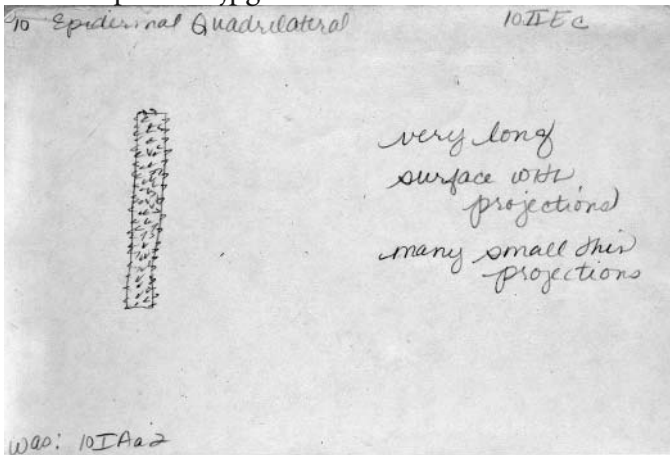 10 Epidermal Quadrilateral
10IIEc
very long
surface with
projections
many small thin
projections
was: 10IAa2